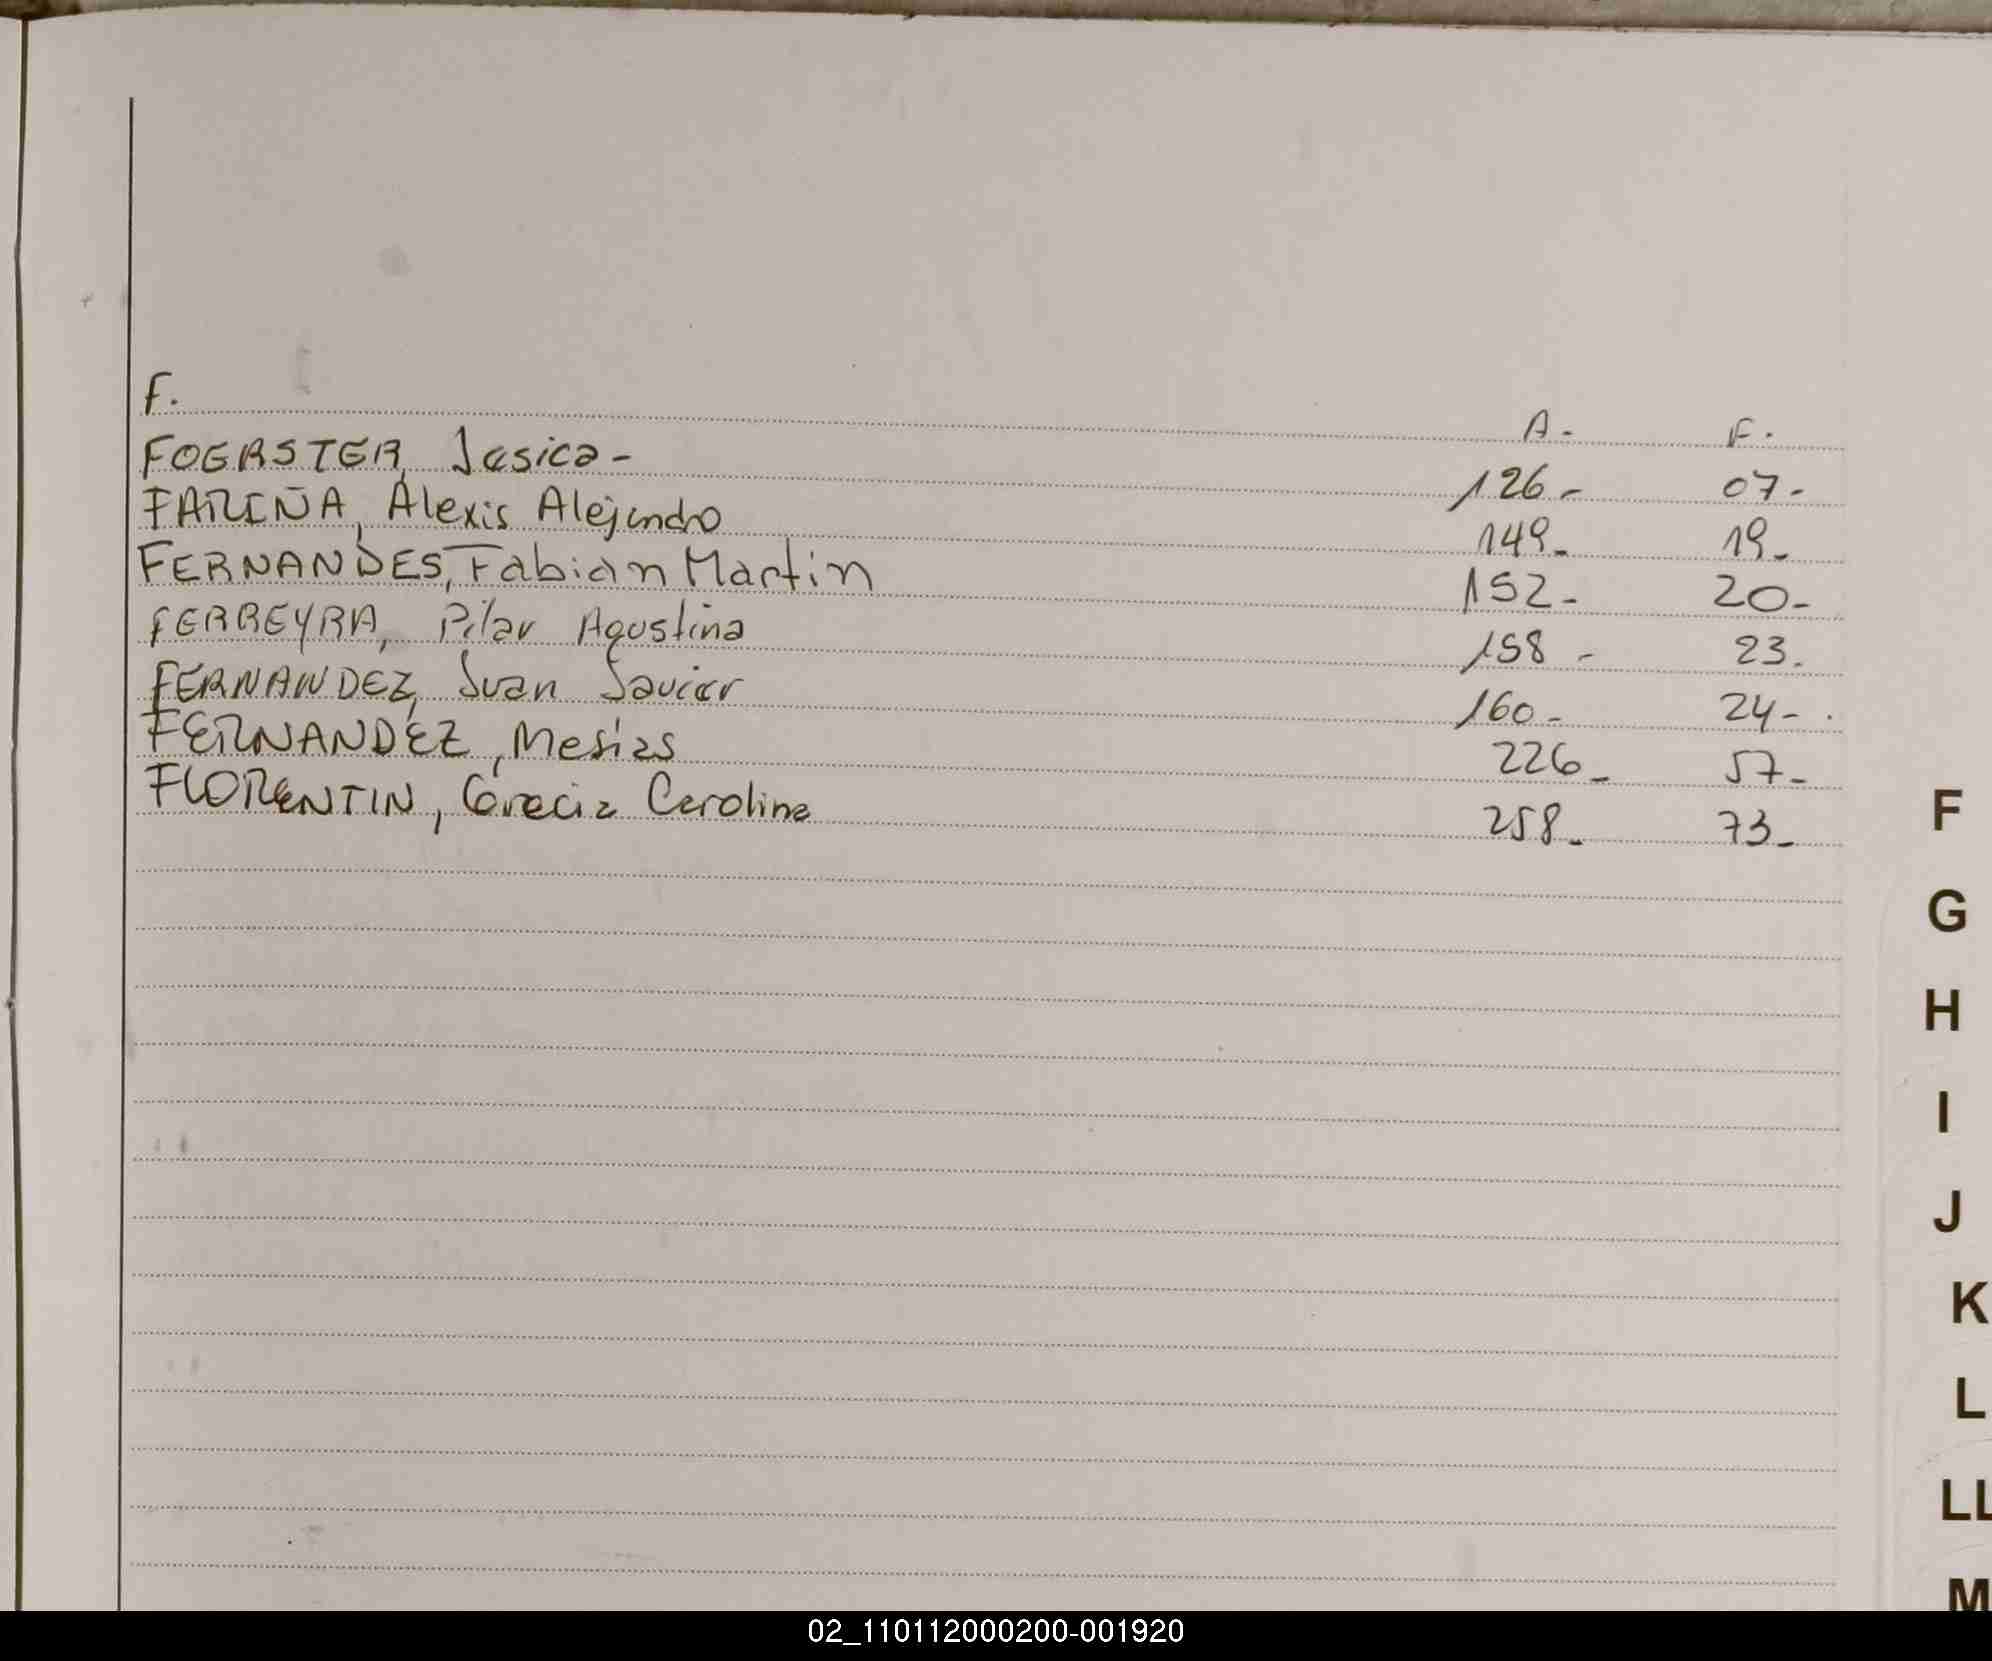 F.
A. F.
FOERSTER, Jesica - 126 - 07 -
FARIÑA, Alexis Alejandro 149 - 19 -
FERNANDES, Fabian Martin 152 - 20 -
FERREYRA, Pilar Agustina 158 - 23.
FERNANDEZ, Juan Javier 160 - 24 - .
FERNANDEZ, Mesias 226 - 57 -
FLORENTIN, Grecia Carolina 258 - 73 -
F
G
H
I
J
K
L
LL
M
02_110112000200-001920